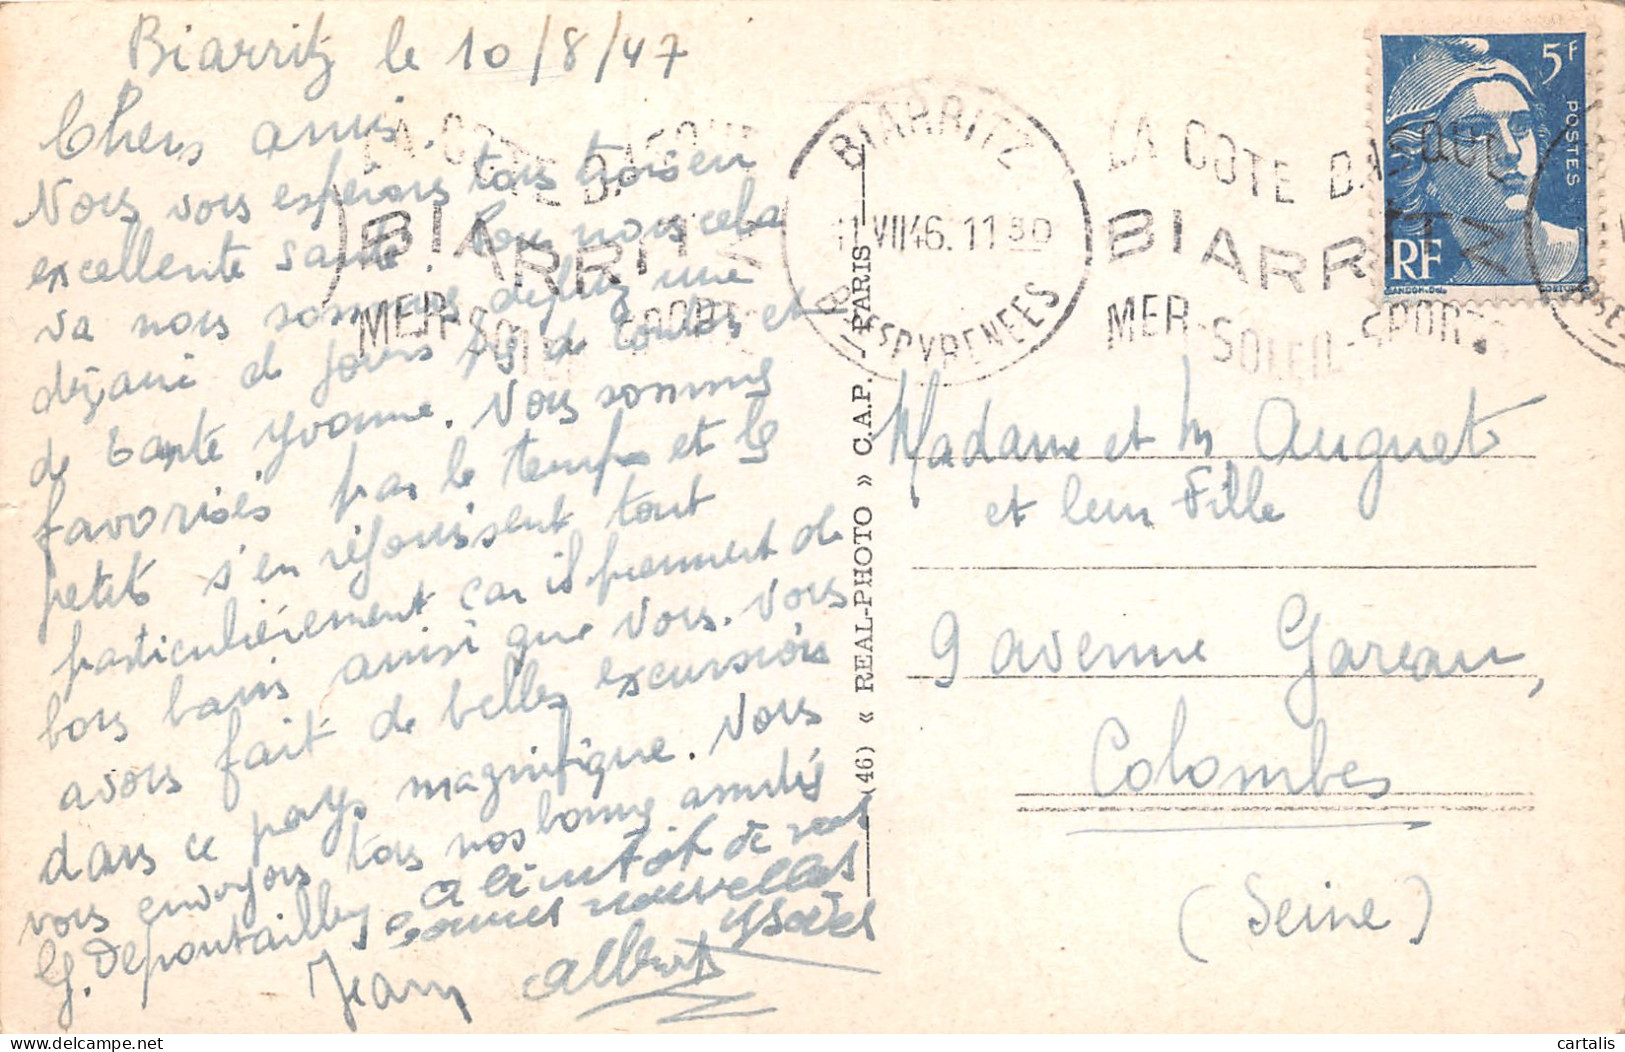 Biarritz le 10/8/47
Chers amis.
Nous vous esperons tous trois en
excellente santé. Pour nous cela
va nous sommes depuis une
dizaine de jours
de tante Yvonne. Nous sommes
favorisés par le temps et les
petits s'en réjouissent tout
particulièrement car il prennent de
bons bains ainsi que nous. Nous
avons fait de belles excursions
dans ce pays magnifique. Nous
vous envoyons tous nos bonne amitiés
G. Depontailler
a bientôt de vous
bonnes nouvelles
Jean Albert
LA COTE BASQUE
BIARRITZ
MER-SOLEIL-SPORT
BIARRITZ
11 VII 46. 11 30
Bses PYRENEES
LA COTE BASQUE
BIARRITZ
MER-SOLEIL-SPORT
5F
POSTES
RF
GANDON-DEL.
(46) « REAL-PHOTO » C.A.P. — PARIS
Madame et M Auguet
et leur Fille
9 avenue Gareau,
Colombes
(Seine)
cartalis
delcampe.net